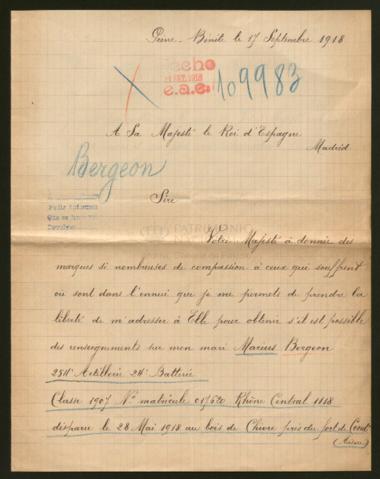 Pierre-Bénite le 17 Septembre 1918
echo
SET. 1918
e.a.e.
109983
A Sa Majesté le Roi d'Espagne
Madrid
Bergeon
Sire
Pedir
Que se
Votre Majesté à donnée des
marques si nombreuses de compassion à ceux qui souffrent
où sont dans l'ennui que je me permets de prendre la
liberté de m'adresser à Elle pour obtenir s'il est possible
des renseignements sur mon mari Marius Bergeon
Artillerie 24e Batterie
Classe 1907 No matricule Rhône Central
disparu le 28 Mai 1918 au bois de Chivre près du fort de Condé
(Aisne)